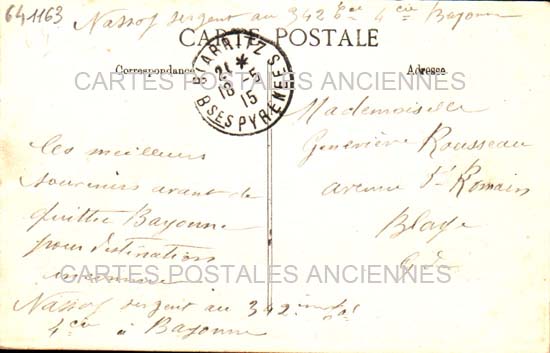 641163
Nassof sergent au 342 4 cie Bayonne
CARTE POSTALE
Correspondance
Adresse
BIARRITZ
21 *
18 -5
15
BSES PYRENEES
CARTES POSTALES ANCIENNES
Mademoiselle
Geneviève Rousseau
avenue St Romain
Blaye
Les meilleurs
souvenirs avant de
quitter Bayonne
pour destination
inconnue
CARTES POSTALES ANCIENNES
Nassof sergent au 342
4 cie à Bayonne